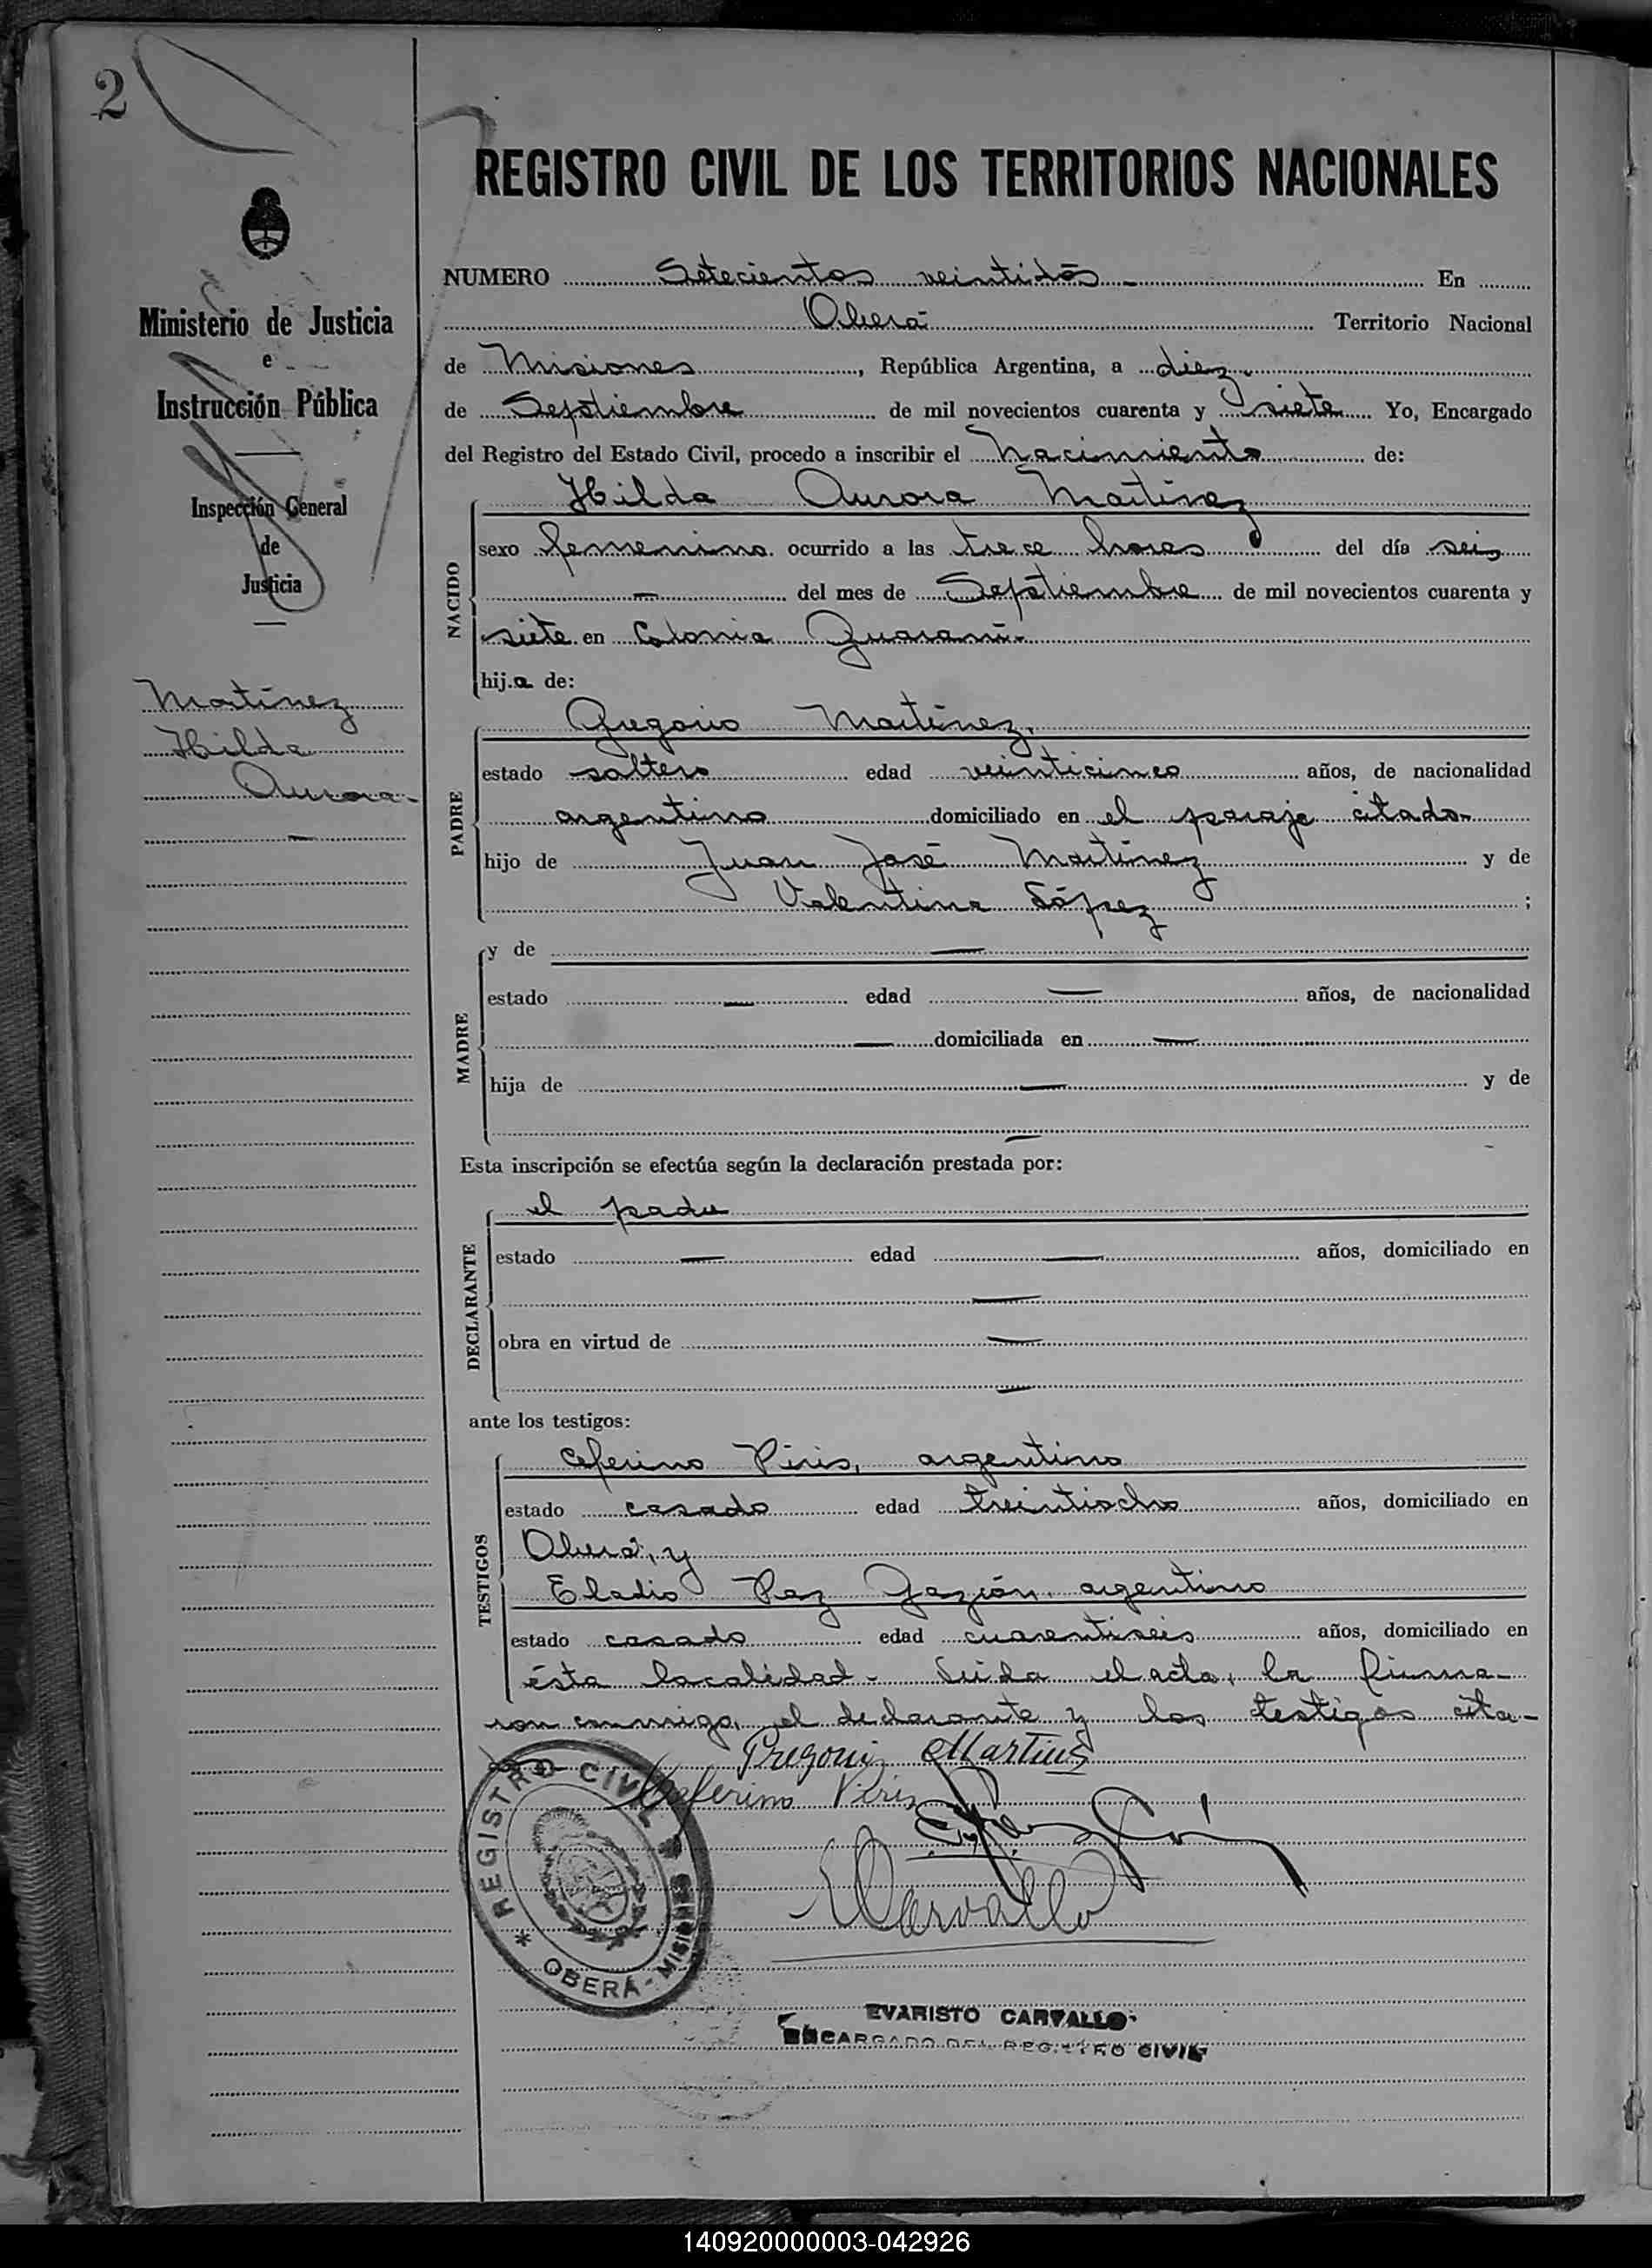 2
REGISTRO CIVIL DE LOS TERRITORIOS NACIONALES
Ministerio de Justicia
e
Instrucción Pública
Inspección General
de
Justicia
Martínez
Hilda
Aurora.
NUMERO Setecientos veintidós En
Oberá Territorio Nacional
de Misiones, República Argentina, a diez
de Septiembre de mil novecientos cuarenta y siete Yo, Encargado
del Registro del Estado Civil, procedo a inscribir el Nacimiento de:
NACIDO
Hilda Aurora Martínez
sexo femenino ocurrido a las trece horas del día seis
— del mes de Septiembre de mil novecientos cuarenta y
siete en Colonia Guaraní.
hij.a de:
PADRE
Gregorio Martínez.
estado soltero edad veinticinco años, de nacionalidad
argentino domiciliado en el paraje citado
hijo de Juan José Martínez y de
Valentina López ;
MADRE
y de —
estado — edad — años, de nacionalidad
— domiciliada en —
hija de — y de
—
Esta inscripción se efectúa según la declaración prestada por:
DECLARANTE
el padre
estado — edad — años, domiciliado en
—
obra en virtud de —
—
ante los testigos:
TESTIGOS
Ceferino Piris, argentino
estado casado edad treintiocho años, domiciliado en
Oberá, y
Eladio Paz argentino
estado casado edad cuarentiseis años, domiciliado en
ésta localidad - Leída el acta, la firma-
ron conmigo, el declarante y los testigos cita-
Gregorio Martines
Ceferino Piris
Carvallo
REGISTRO CIVIL
* OBERÁ - MISIONES
EVARISTO CARVALLO
ENCARGADO DEL REGISTRO CIVIL
140920000003-042926